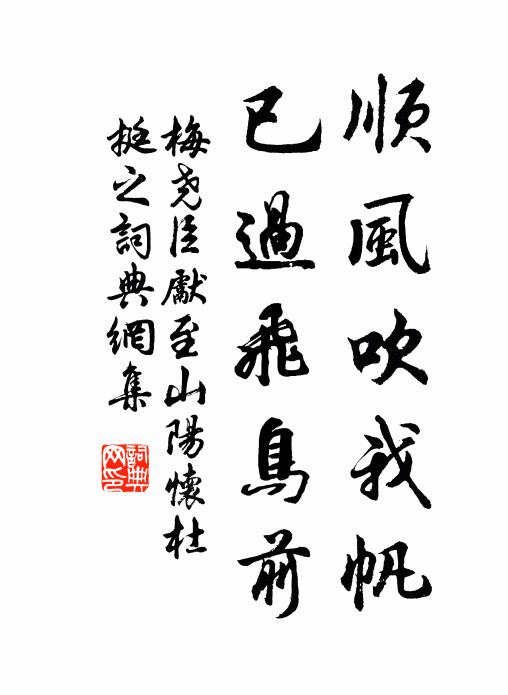 順風吹我帆
已過飛鳥前
梅堯臣獻至山陽懷杜
挺之詞典網集
詞典
网印